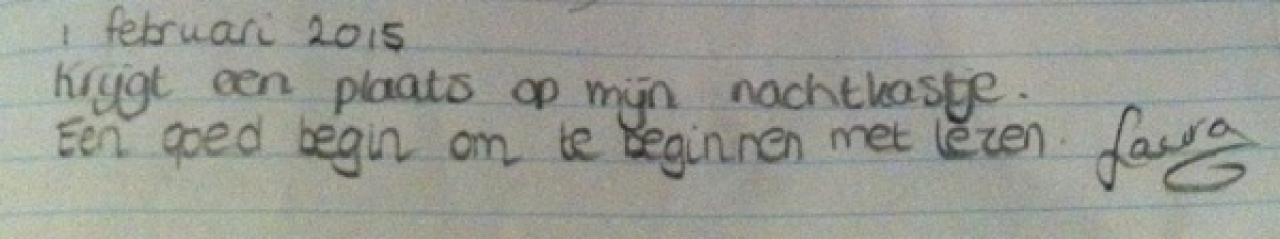 1 februari 2015
Krijgt een plaats op mijn nachtkastje.
Een goed begin om te beginnen met lezen. Laura